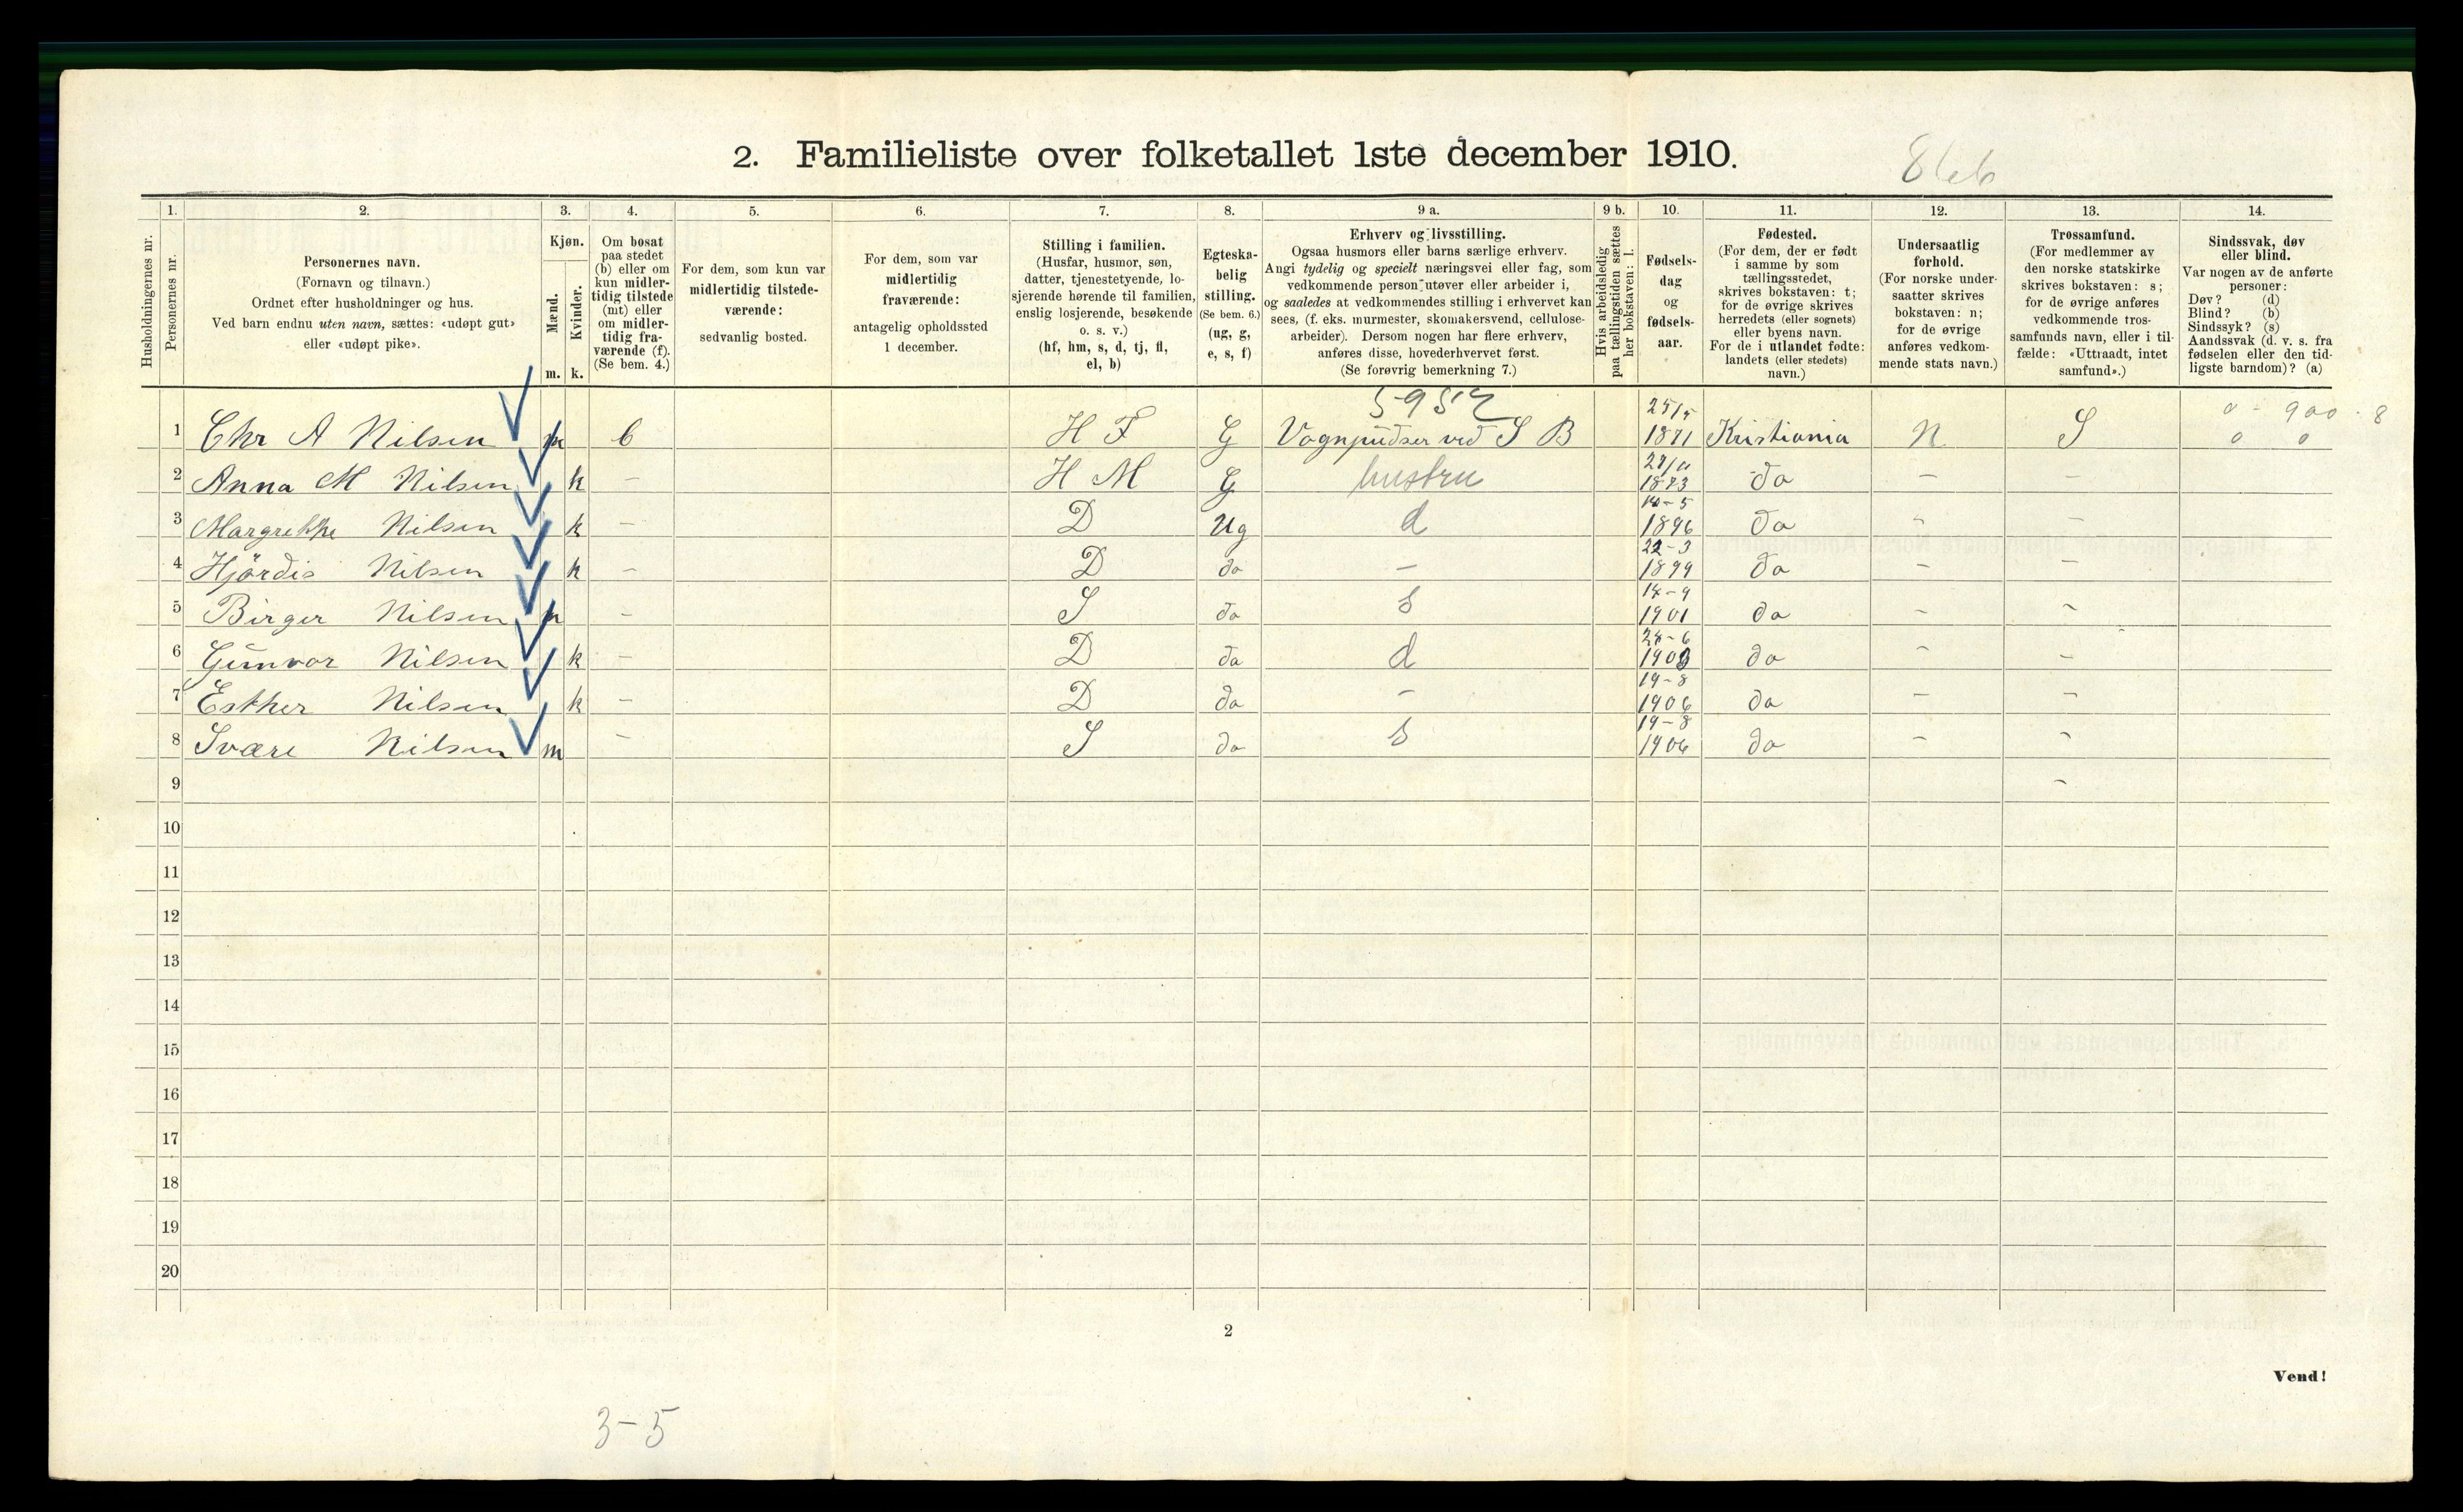 2. Familieliste over folketallet 1ste december 1910.
866
Husholdningernes nr.
1.
Personernes nr.
2.
Personernes navn.
(Fornavn og tilnavn.)
Ordnet efter husholdninger og hus.
Ved barn endnu uten navn, sættes: «udøpt gut»
eller «udøpt pike».
3.
Kjøn.
Mænd.
Kvinder.
m. k.
4.
Om bosat
paa stedet
(b) eller om
kun midler-
tidig tilstede
(mt) eller
om midler-
tidig fra-
værende (f).
(Se bem. 4.)
5.
For dem, som kun var
midlertidig tilstede-
værende:
sedvanlig bosted.
6.
For dem, som var
midlertidig
fraværende:
antagelig opholdssted
1 december.
7.
Stilling i familien.
(Husfar, husmor, søn,
datter, tjenestetyende, lo-
sjerende hørende til familien,
enslig losjerende, besøkende
o. s. v.)
(hf, hm, s, d, tj, fl,
el, b)
8.
Egteska-
belig
stilling.
(Se bem. 6.)
(ug, g,
e, s, f)
9 a.
Erhverv og livsstilling.
Ogsaa husmors eller barns særlige erhverv.
Angi tydelig og specielt næringsvei eller fag, som
vedkommende person utøver eller arbeider i,
og saaledes at vedkommendes stilling i erhvervet kan
sees, (f. eks. murmester, skomakersvend, cellulose-
arbeider). Dersom nogen har flere erhverv,
anføres disse, hovederhvervet først.
(Se forøvrig bemerkning 7.)
9 b.
Hvis arbeidsledig
paa tællingstiden sættes
her bokstaven: l.
10.
Fødsels-
dag
og
fødsels-
aar.
11.
Fødested.
(For dem, der er født
i samme by som
tællingsstedet,
skrives bokstaven: t;
for de øvrige skrives
herredets (eller sognets)
eller byens navn.
For de i utlandet fødte:
landets (eller stedets)
navn.)
12.
Undersaatlig
forhold.
(For norske under-
saatter skrives
bokstaven: n;
for de øvrige
anføres vedkom-
mende stats navn.)
13.
Trossamfund.
(For medlemmer av
den norske statskirke
skrives bokstaven: s;
for de øvrige anføres
vedkommende tros-
samfunds navn, eller i til-
fælde: «Uttraadt, intet
samfund».)
14.
Sindssvak, døv
eller blind.
Var nogen av de anførte
personer:
Døv? (d)
Blind? (b)
Sindssyk? (s)
Aandssvak (d. v. s. fra
fødselen eller den tid-
ligste barndom)? (a)
5952
25/5 0 - 900 . 8
1 Chr A Nilsen m b H F G Vognpudser ved S B 1871 Kristiania N S 0 0
2 Anna M Nilsen k - H M G hustru 1873 do - -
14-5
3 Margrethe Nilsen k - D Ug d 1896 do - -
22-3
4 Hjördis Nilsen k - D do - 1899 do - -
14-9
5 Birger Nilsen m - S do s 1901 do - -
24-6
6 Gunvor Nilsen k - D do d 1903 do - -
19-8
7 Esther Nilsen k - D do - 1906 do - -
19-8
8 Svære Nilsen m - S do s 1906 do - -
9 -
10
11
12
13
14
15
16
17
18
19
20
2
Vend!
3-5